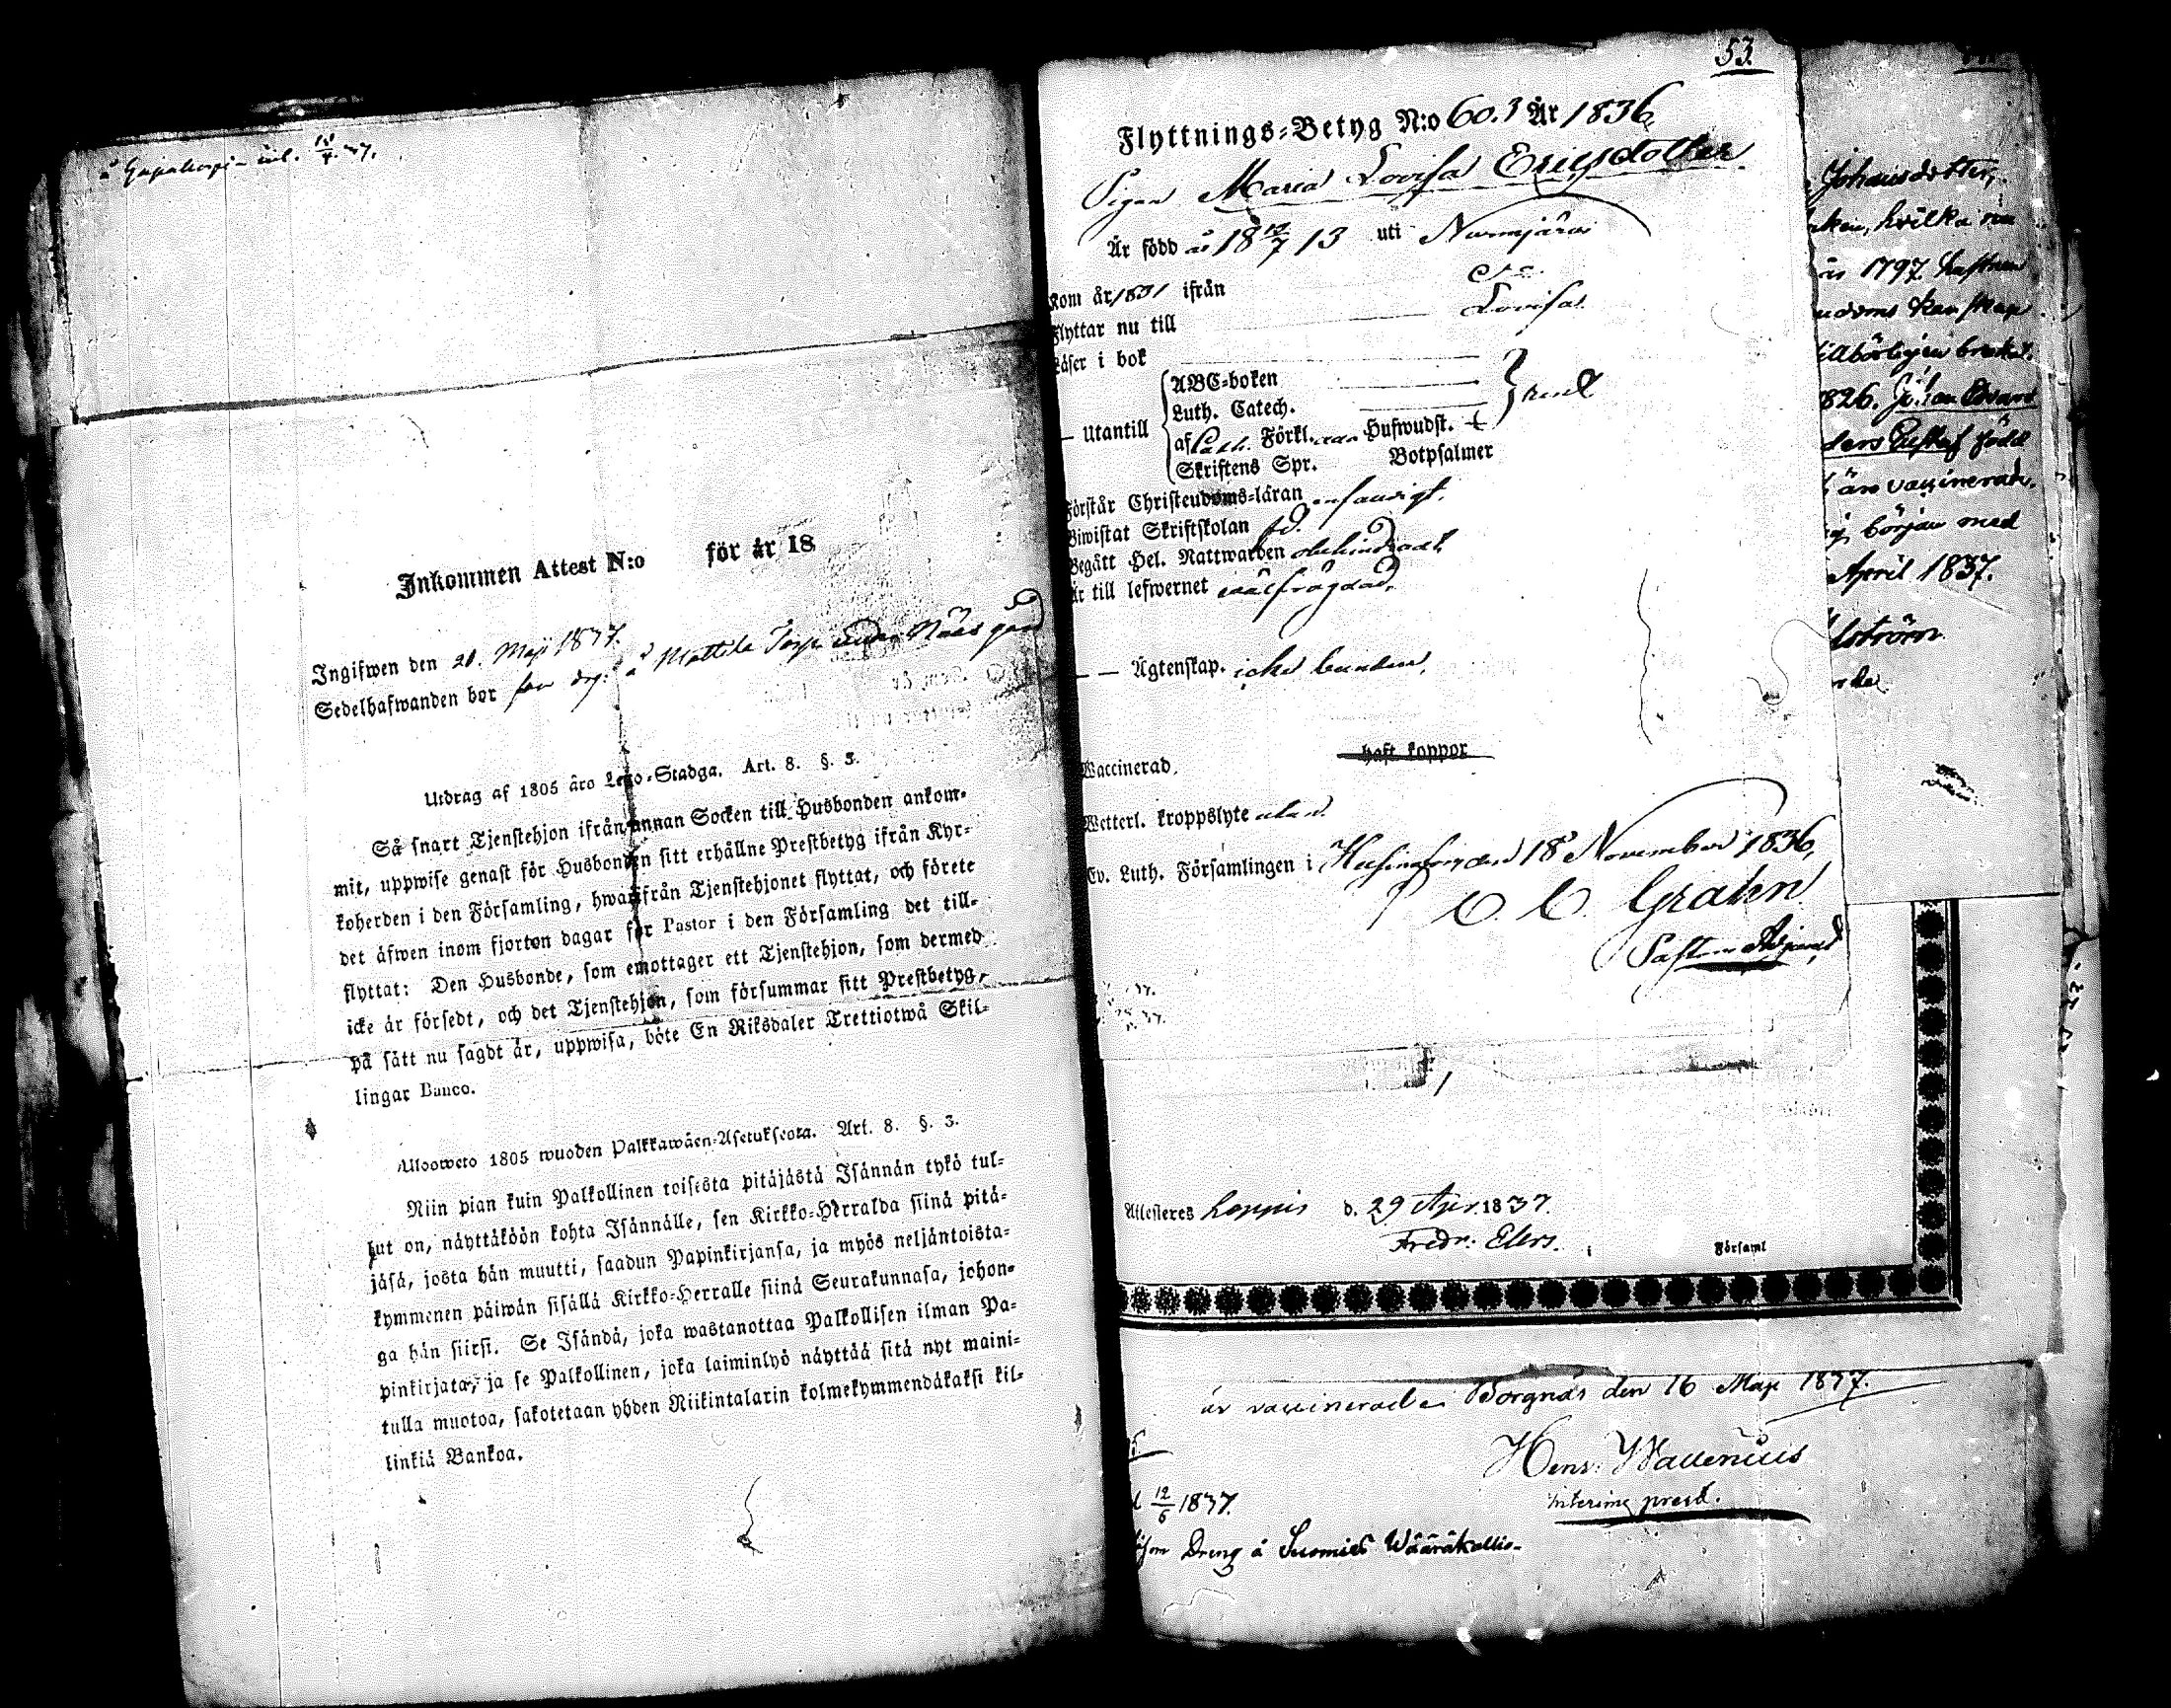 inl. 18/4. 37.
Inkommen Attest N:o för år 18
Ingifwen den 21. Maji 1837.
Sedelhafwanden bor som drg: å Mattila Torp under Näås gård
Utdrag af 1805 års Lego-Stadga. Art. 8. §. 3.
Så snart Tjenstehjon ifrån annan Socken till Husbonden ankom-
mit, uppwise genast för Husbonden sitt erhållne Prestbetyg ifrån Kyr-
koherden i den Församling, hwarifrån Tjenstehjonet flyttat, och förete
det äfwen inom fjorton dagar för Pastor i den Församling det till-
flyttat: Den Husbonde, som emottager ett Tjenstehjon, som dermed
icke är försedt, och det Tjenstehjon, som försummar sitt Prestbetyg,
på sätt nu sagdt är, uppwisa, böte En Riksdaler Trettiotwå Skil-
lingar Banco.
Ulosweto 1805 wuoden Palkkawäen-Asetuksesta. Art. 8. §. 3.
Niin pian kuin Palkollinen toisesta pitäjästä Isännän tykö tul-
lut on, näyttäköön kohta Isännälle, sen Kirkko-Herralda siinä pitä-
jäsä, josta hän muutti, saadun Papinkirjansa, ja myös neljäntoista-
kymmenen päiwän sisällä Kirkko-Herralle siinä Seurakunnasa, johon-
ga hän siirsi. Se Isändä, joka wastanottaa Palkollisen ilman Pa-
pinkirjata, ja se Palkollinen, joka laiminlyö näyttää sitä nyt maini-
tulla muotoa, sakotetaan yhden Riikintalarin kolmekymmendäkaksi kil-
linkiä Bankoa.
53.
Flyttnings-Betyg N:o 603 År 1836
Pigan Maria Lovisa Ericsdotter
Är född år 18 12/7 13 uti Nurmijärvi
Kom år 1831 ifrån
Flyttar nu till Lovisa.
Läser i bok
ABC-boken
Luth. Catech.
— Utantill af Cath. Förkl. Hufwudst.
Skriftens Spr. Botpsalmer
Förstår Christendoms-läran enfaldigt.
Biwistat Skriftskolan
Begått Hel. Nattwarden obehindradt,
Är till lefwernet wälfrägdad.
— — Ägtenskap. icke bunden,
Waccinerad, haft koppor
Wetterl. kroppslyte utan.
Ev. Luth. Församlingen i Helsingfors den 18 November 1836,
C. C. Grahn
Pastors Adjunct
Johansdotter,
hvilka
1797
826. Johan Edvard
Gustaf född
äro vaccinerade.
början med
April 1837.
Attesteres Loppis d. 29 Apr. 1837.
Fredr. Elers.
Församl
är vaccinerad. Borgnäs den 16 Maji 1837.
Henr. Wallenius
interims prest.
12/6 1837.
som Dreng å Suomis Wääräkallio